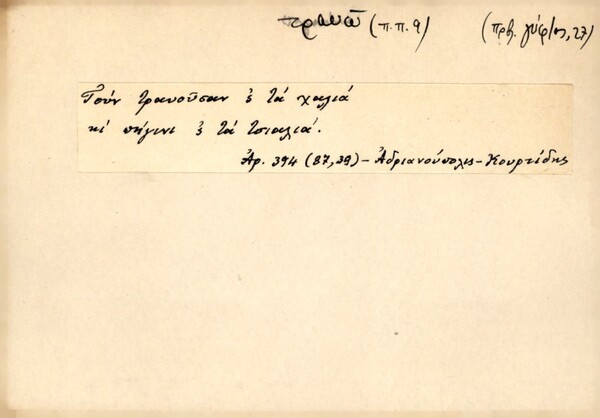 τρανῶ (π.π. 9) (πρβ. γύφτος, 27)
Τοὺν τρανοῦσαν ς τὰ χαλιά
κὶ πήγινι ς τὰ τσιαλιά.
Ἀρ. 394 (87, 29) - Ἀδριανούπολις - Κουρτίδης